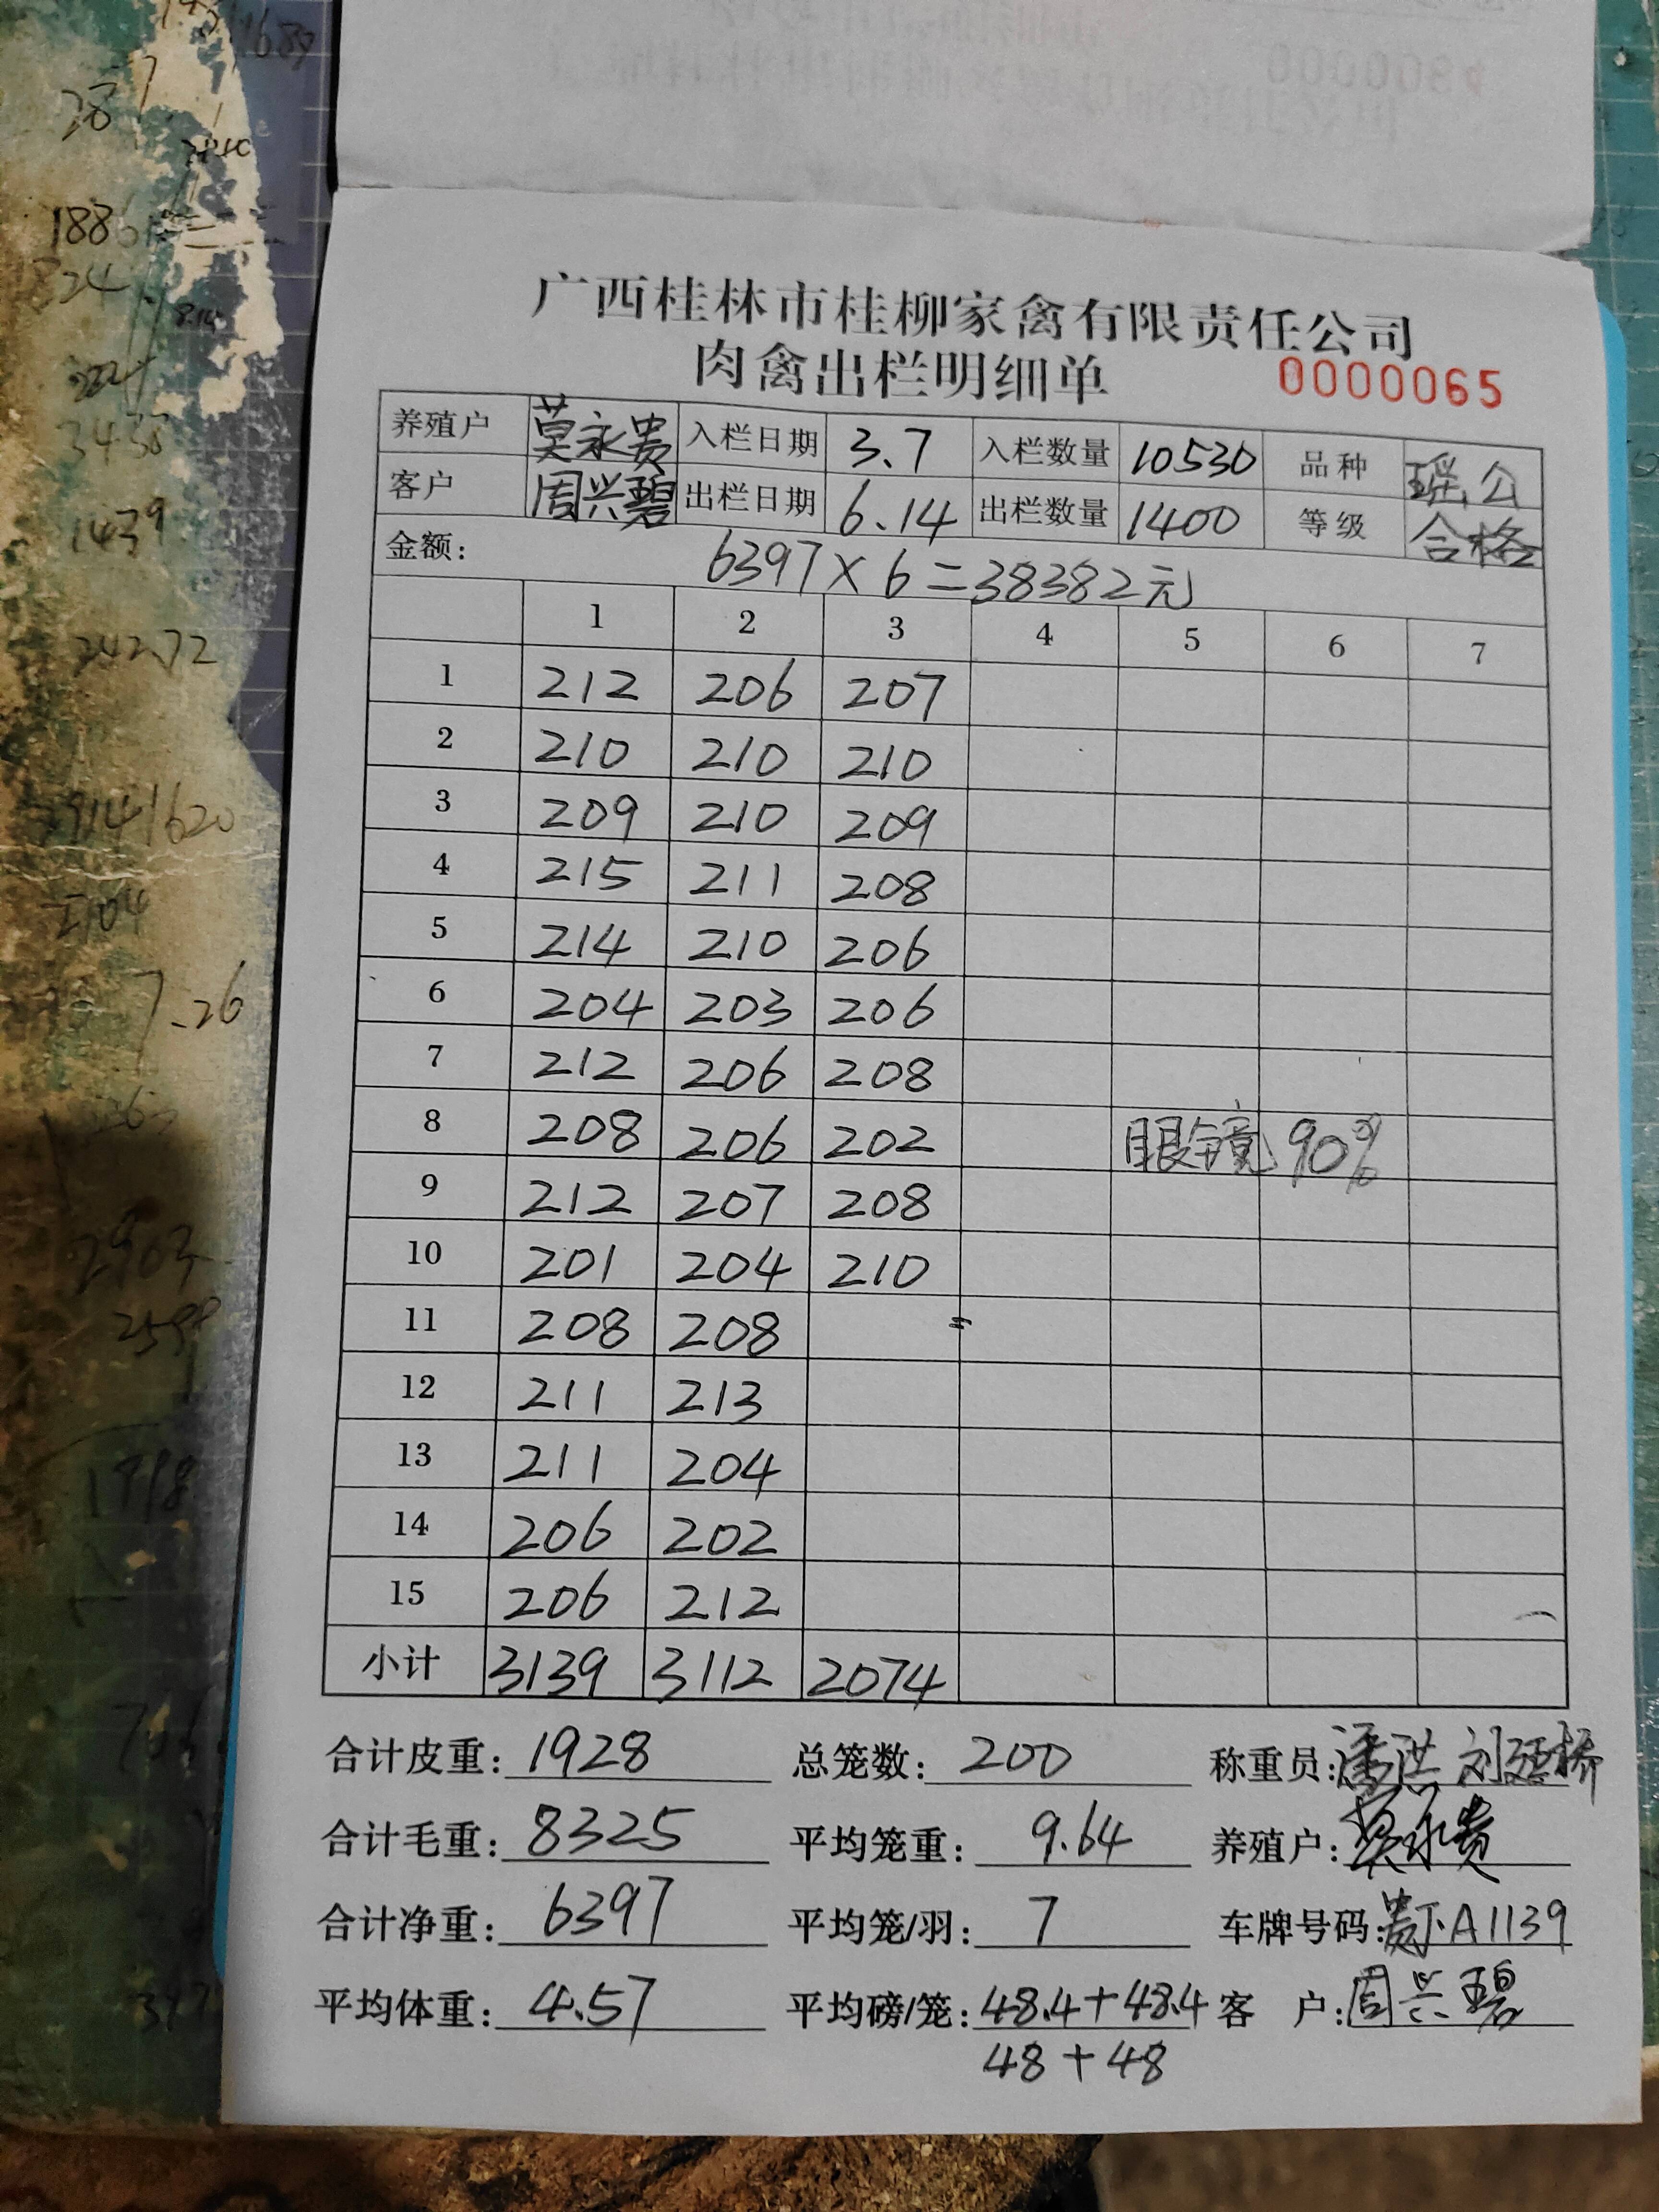 广西桂林市桂柳家禽有限责任公司
肉禽出栏明细单 0000065
养殖户 莫永贵 入栏日期 3.7 入栏数量 10530 品种 瑶公
客户 周兴碧 出栏日期 6.14 出栏数量 1400 等级 合格
金额: 6397×6=38382元
1 2 3 4 5 6 7
1 212 206 207
2 210 210 210
3 209 210 209
4 215 211 208
5 214 210 206
6 204 203 206
7 212 206 208
8 208 206 202 眼镜 90%
9 212 207 208
10 201 204 210
11 208 208
12 211 213
13 211 204
14 206 202
15 206 212
小计 3139 3112 2074
合计皮重: 1928 总笼数: 200 称重员: 潘洪 刘廷桥
合计毛重: 8325 平均笼重: 9.64 养殖户: 莫永贵
合计净重: 6397 平均笼/羽: 7 车牌号码: A1139
平均体重: 4.57 平均磅/笼: 48.4+48.4 客 户: 周兴碧
48+48
287
1886
224
3438
1439
242.72
1620
2104
7.26
2903
1998